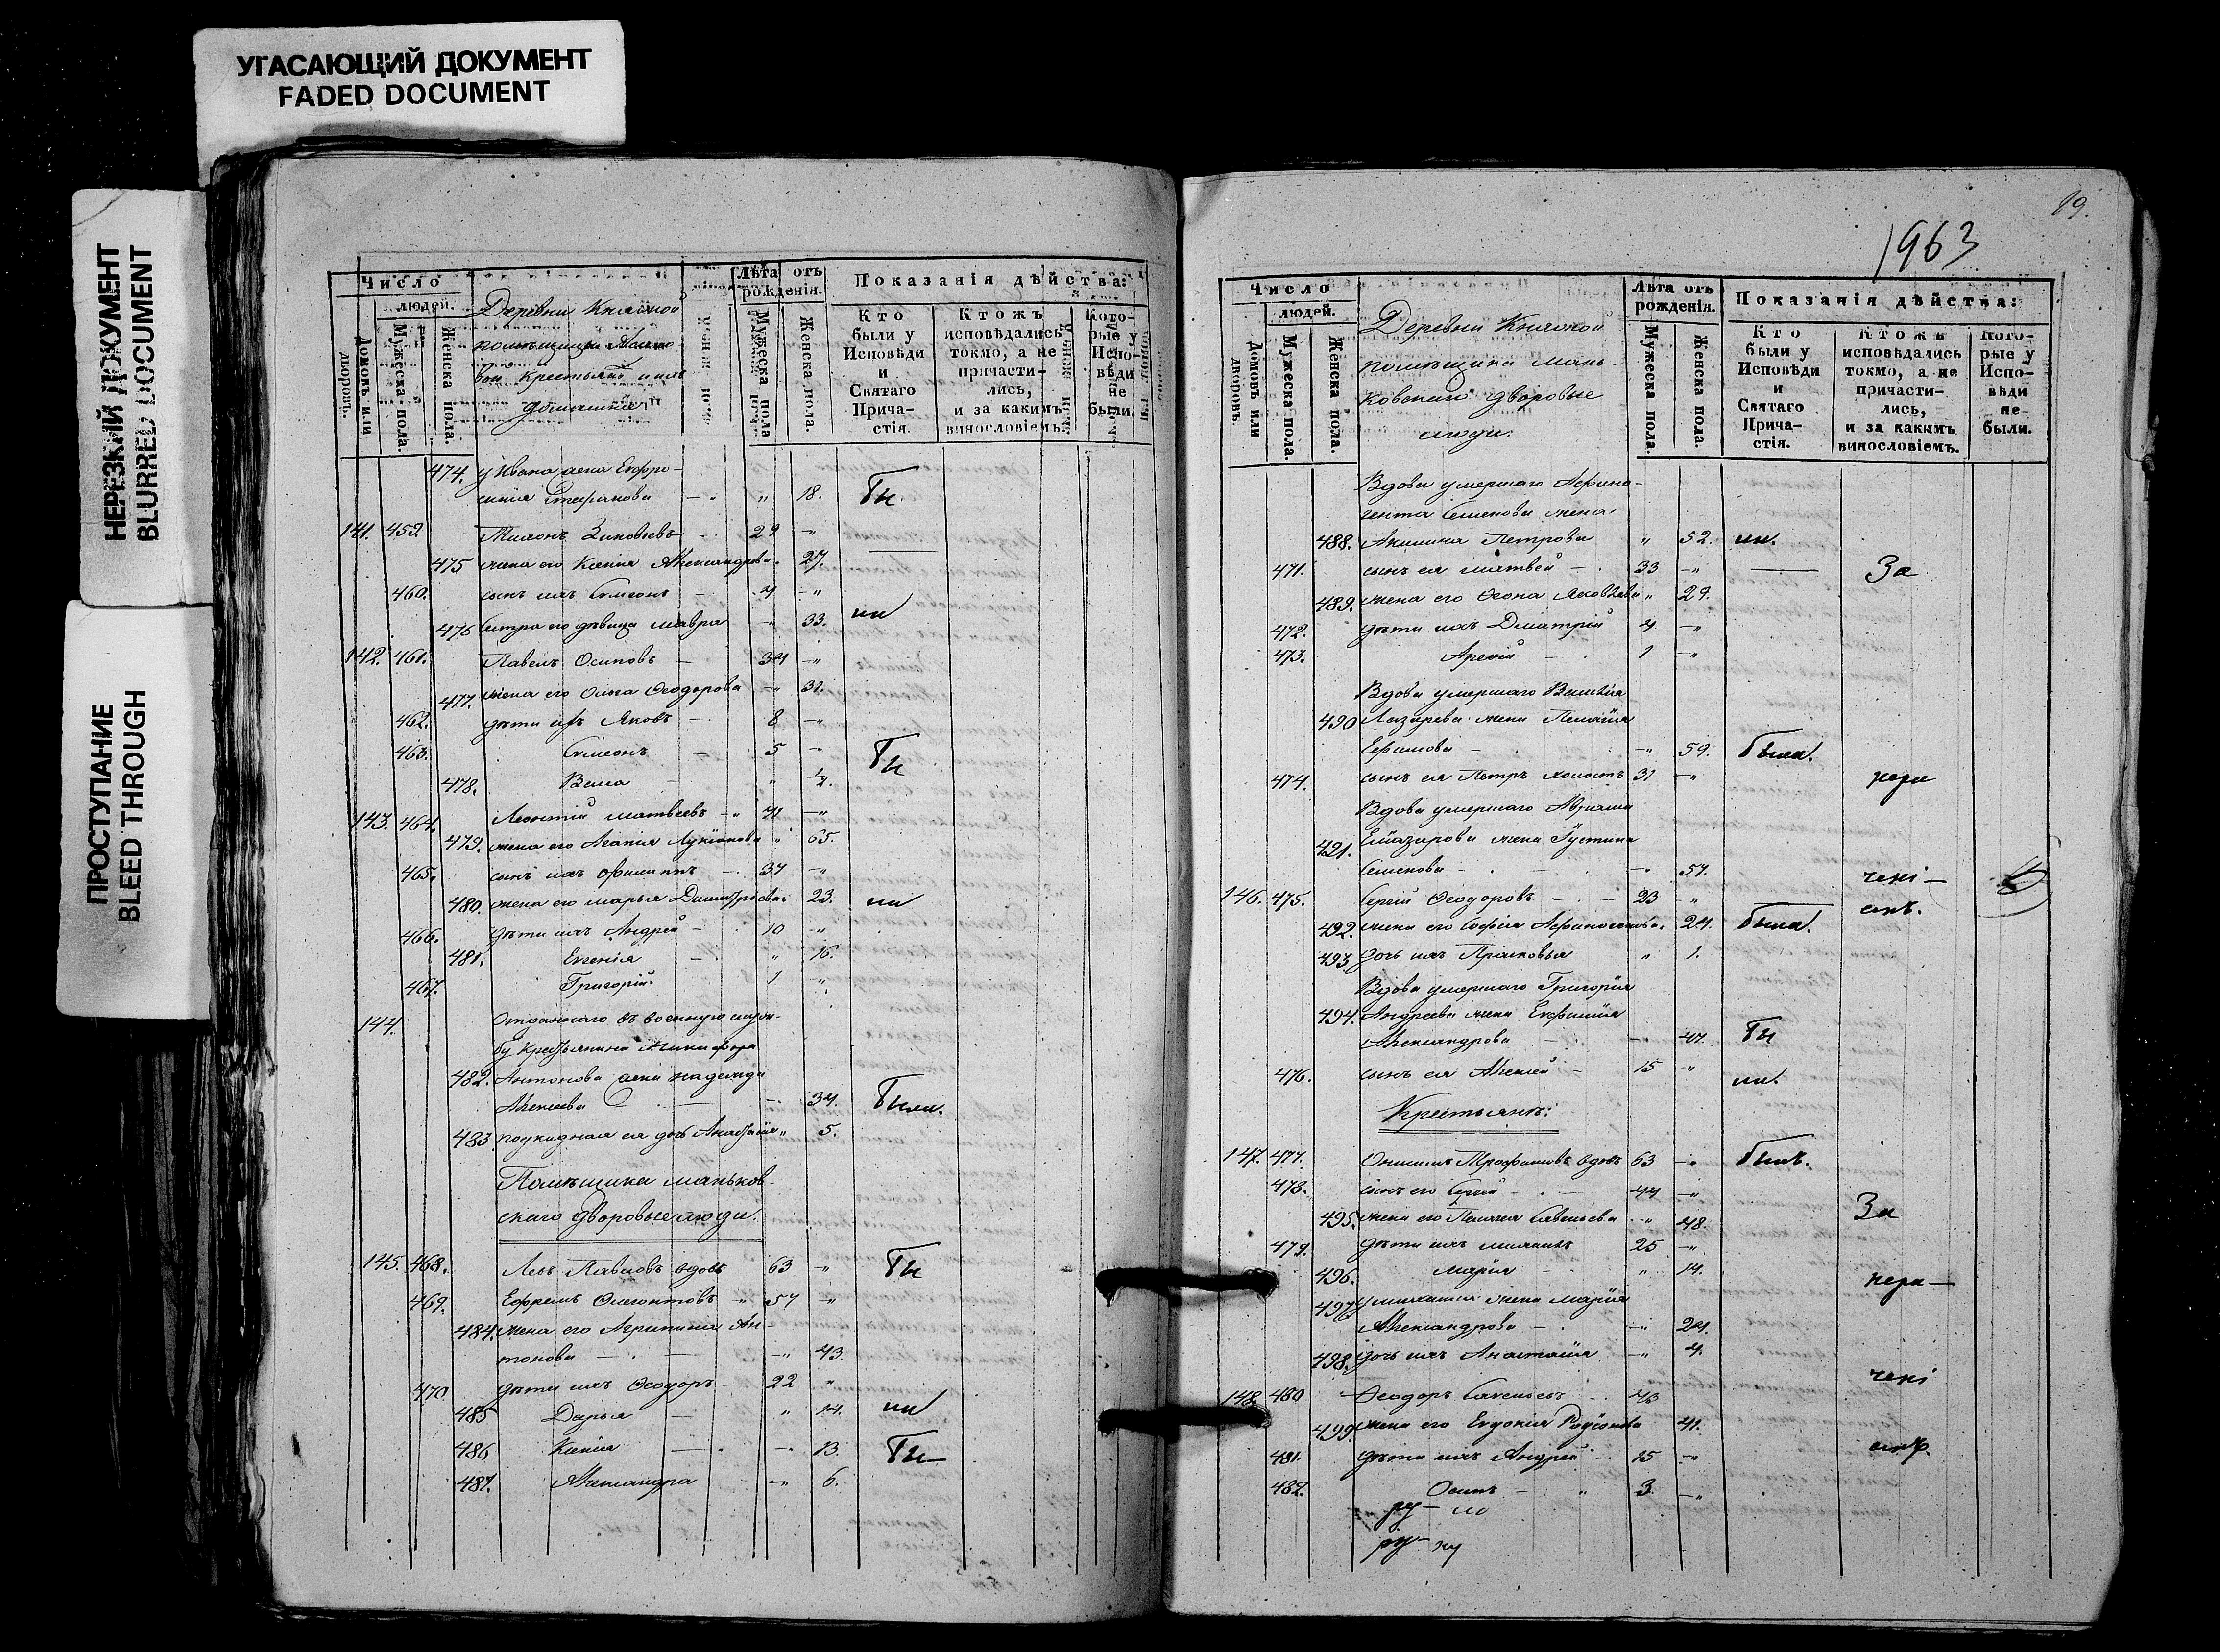 УГАСАЮЩИЙ ДОКУМЕНТ
FADED DOCUMENT
НЕРЕЗКИЙ ДОКУМЕНТ
BLURRED DOCUMENT
ПРОСТУПАНИЕ
BLEED THROUGH
Число
людей.
Домовъ или дворовъ.
Мужеска пола.
Женска пола.
Деревни Княжой
помѣщицы
вой крестьяне и ихъ
домашніе
Лѣта отъ рожденія.
Мужеска пола
Женска пола.
Показанія дѣйства:
Кто были у Исповѣди и Святаго Прича-стія.
Кто жъ исповѣдались токмо, а не причасти-лись, и за какимъ винословіемъ.
Кото-рые у Испо-вѣди не были.
474. у Ивана жена Евфро-
синія Стефанова " 18. Бы
141. 459. Миронъ Зиновьевъ 29 "
475 жена его Ксенія Александрова 27.
460. сынъ ихъ Симеонъ 4 "
476 сестра его дѣвица Мавра " 33. ли
142. 461. Павелъ Осиповъ 34 "
477. жена его Ольга Ѳеодорова " 31.
462. дѣти ихъ Яковъ 8 "
463. Симеонъ 5 " Бы
478. "
143. 464. Леонтій Матвѣевъ 71 "
479. жена его Агапія Лукіанова " 65.
465. сынъ ихъ Филиппъ 37 "
480. жена его Марья Димитріева 23. ли
466. дѣти ихъ Андрей 10 "
481. Евгенія " 16.
467. Григорій 1 "
144. Отданнаго въ военную служ-
бу крестьянина Никифора
482. Антонова жена Надежда
Алексѣева 34. Была.
483. подкидная ея дочь Анастасія " 5.
Помѣщика Маньков-
скаго дворовые люди.
145. 468. Левъ Павловъ вдовъ 63 " Бы
469. Ефремъ 57 "
484. жена его Агрипина Ан-
тонова " 43.
470 дѣти ихъ Ѳеодоръ 22 "
485 Дарья " 14. ли
486 Ксенія 13. Бы
487. Александра " 6.
19.
1963
Число
людей.
Домовъ или дворовъ.
Мужеска пола.
Женска пола.
Деревни Княжой
помѣщика Мань-
ковскаго дворовые
люди.
Лѣта отъ рожденія.
Мужеска пола.
Женска пола.
Показанія дѣйства:
Кто были у Исповѣди и Святаго Прича-стія.
Кто жъ исповѣдались токмо, а не причасти-лись, и за какимъ винословіемъ.
Кото-рые у Испо-вѣди не были.
Вдова умершаго Афино-
гента Семенова жена
488. Акилина Петрова " 52. ли.
471. сынъ ея Матвей 33 " За
489. жена его Ѳеона Яковлева " 29.
472. дѣти ихъ Димитрій 4 "
473. 1 "
Вдова умершаго Василія
490 Лазарева жена Пелагія
Ефимова " 59. была.
474. сынъ ея Петръ холостъ 31 " нера
Вдова умершаго Авраама
491. Елиазарова жена Іустина
Семенова 57. чені-
146. 475. Сергій Ѳеодоровъ 23 " емъ.
492. жена его Софія Афиногентова 24. была.
493 дочь ихъ Прасковья " 1.
Вдова умершаго Григорія
494. Андреева жена Евфимія
Александрова 47. Бы
476. сынъ ея Алексій 15 " ли.
Крестьяне:
147. 477. Онисимъ Трофимовъ вдовъ 63 былъ.
478. сынъ его Сергій 44 "
495. жена его Пелагея Савельева " 48. За
479. дѣти ихъ 25 "
496. Марія " 14. нера-
497. жена Марія
Александрова " 24.
498. дочь ихъ Анастасія " 4. чені
148. 480 Ѳеодоръ Савельевъ 43
499. жена его Евдокія Родіонова 41.
481. дѣти ихъ Андрей 15 " емъ.
482. Осипъ 3 "
ру
ру ку